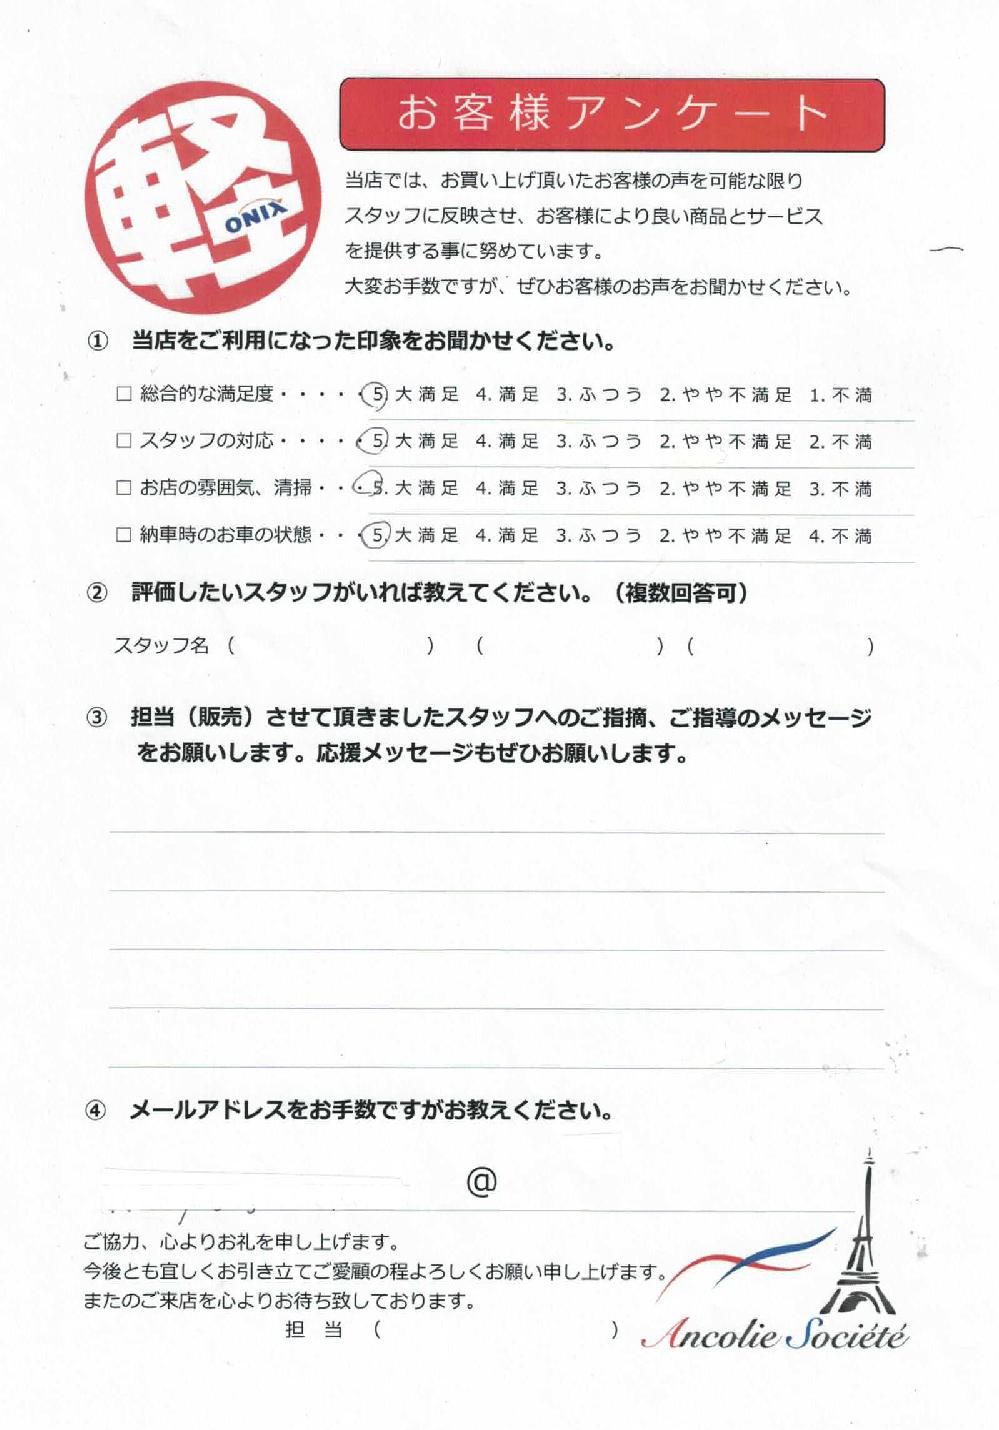 軽
ONIX
お客様アンケート
当店では、お買い上げ頂いたお客様の声を可能な限り
スタッフに反映させ、お客様により良い商品とサービス
を提供する事に努めています。
大変お手数ですが、ぜひお客様のお声をお聞かせください。
① 当店をご利用になった印象をお聞かせください。
□ 総合的な満足度・・・・・5 大満足 4.満足 3.ふつう 2.やや不満足 1.不満
□ スタッフの対応・・・・・5 大満足 4.満足 3.ふつう 2.やや不満足 2.不満
□ お店の雰囲気、清掃・・・5.大満足 4.満足 3.ふつう 2.やや不満足 3.不満
□ 納車時のお車の状態・・・5 大満足 4.満足 3.ふつう 2.やや不満足 4.不満
② 評価したいスタッフがいれば教えてください。（複数回答可）
スタッフ名（ ） （ ）（ ）
③ 担当（販売）させて頂きましたスタッフへのご指摘、ご指導のメッセージ
をお願いします。応援メッセージもぜひお願いします。
④ メールアドレスをお手数ですがお教えください。
@
ご協力、心よりお礼を申し上げます。
今後とも宜しくお引き立てご愛顧の程よろしくお願い申し上げます。
またのご来店を心よりお待ち致しております。
担 当 （ ）
Ancolie Société